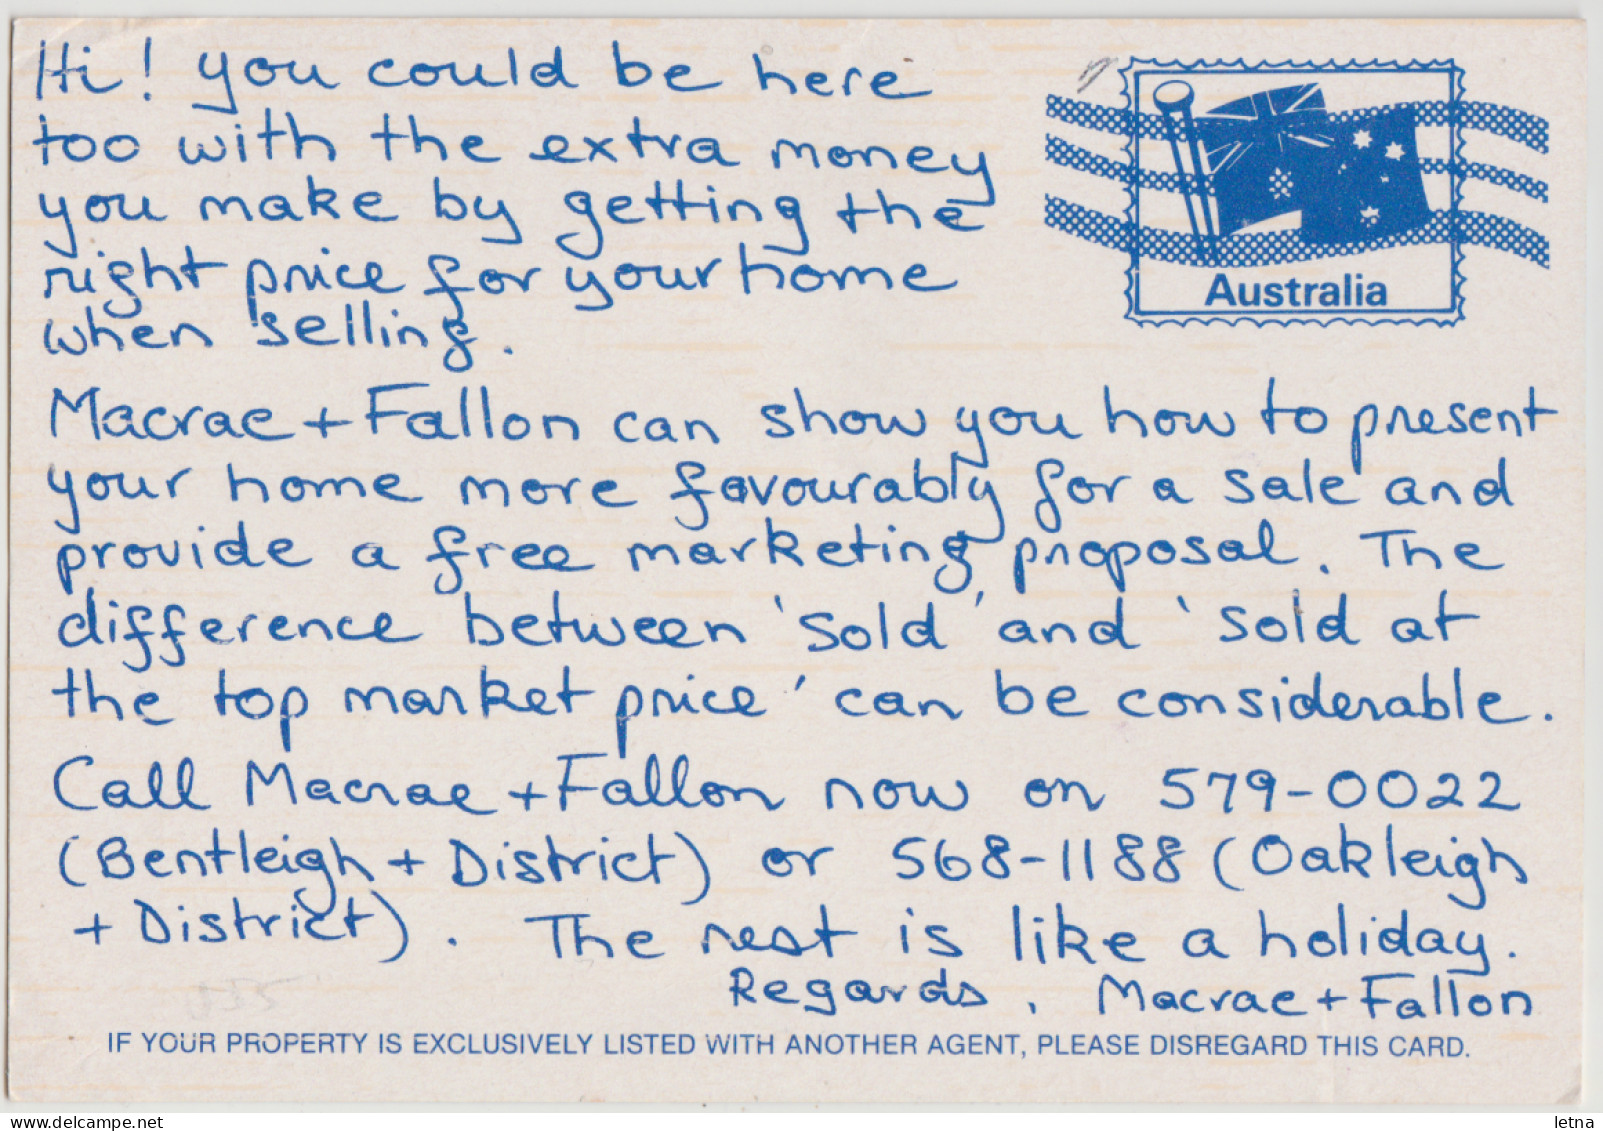 Hi! you could be here
too with the extra money
you make by getting the
right price for your home
when selling.
Australia
Macrae + Fallon can show you how to present
your home more favourably for a sale and
provide a free marketing proposal. The
difference between 'sold' and 'sold at
the top market price' can be considerable.
Call Macrae + Fallon now on 579-0022
(Bentleigh + District) or 568-1188 (Oakleigh
+ District). The rest is like a holiday.
Regards, Macrae + Fallon
IF YOUR PROPERTY IS EXCLUSIVELY LISTED WITH ANOTHER AGENT, PLEASE DISREGARD THIS CARD.
www.delcampe.net
letna